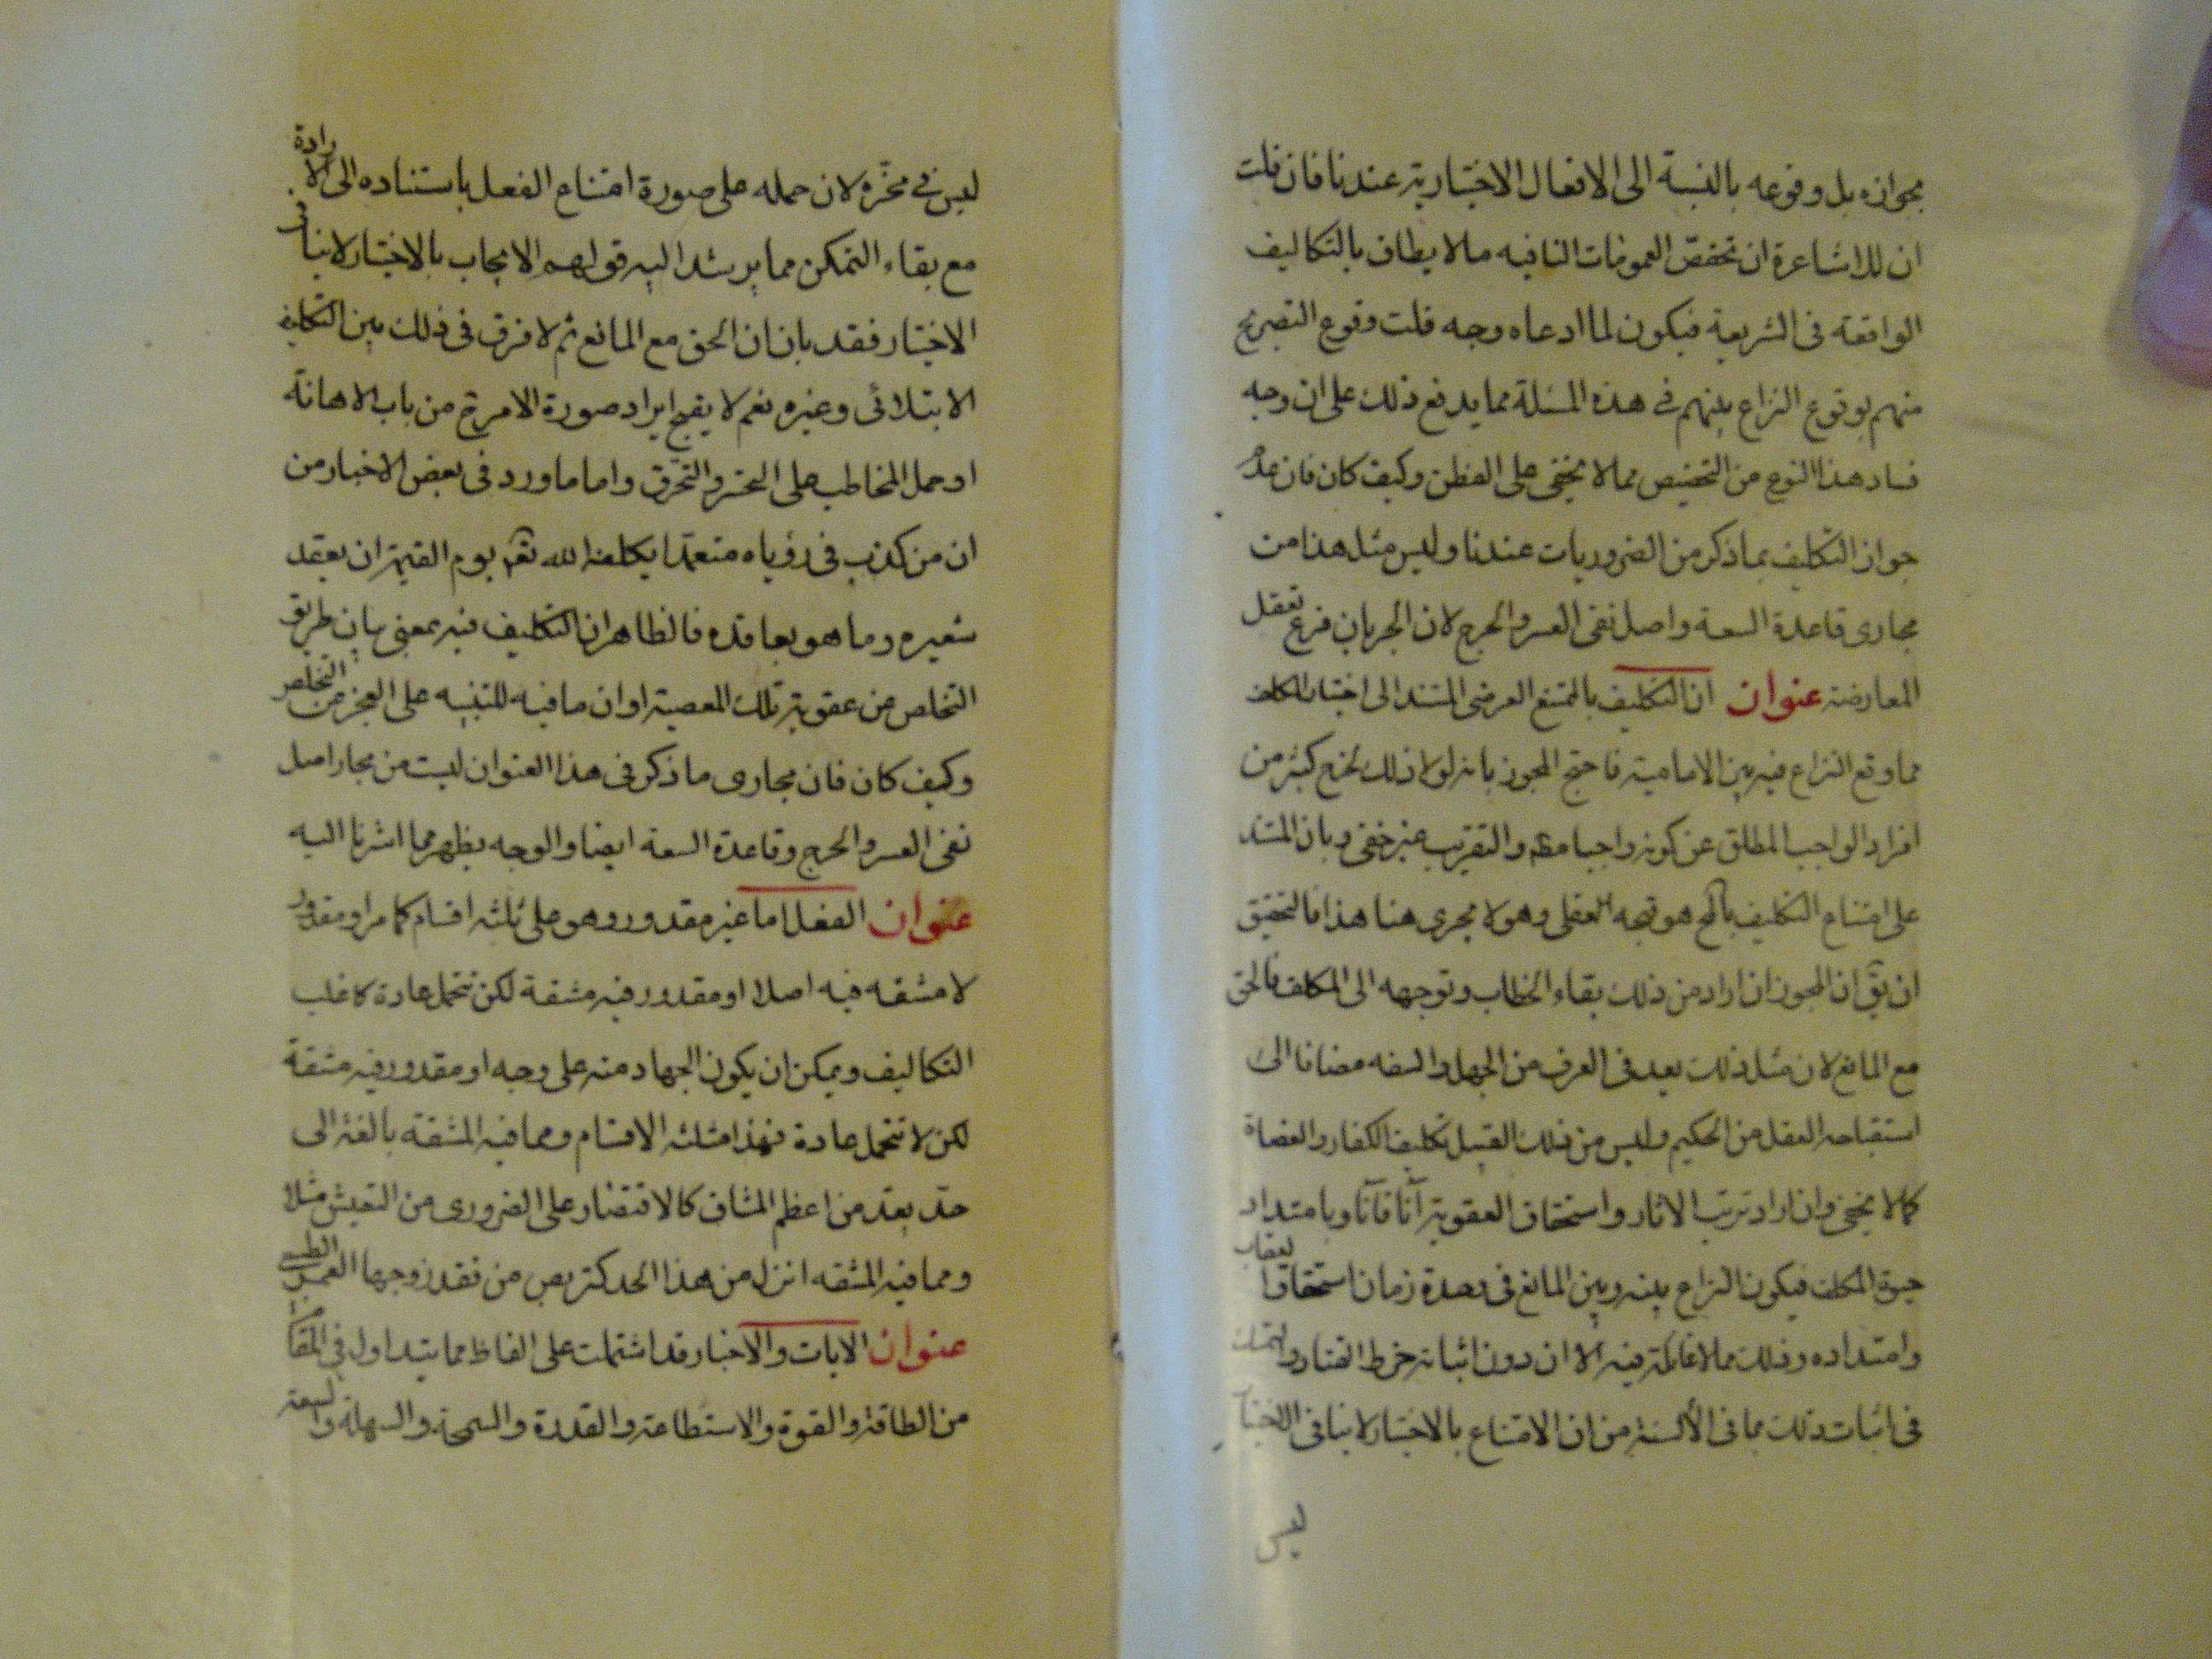 بجوازه بل وقوعه بالنسبة الى الافعال الاختيارية عندنا فان قلت
ان للاشاعرة ان تخصص العمومات النافيه ما لا يطاق بالتكاليف
الواقعة فى الشريعة فيكون لما ادعاه وجه قلت وقوع التصريح
منهم بوقوع النزاع بينهم في هذه المسئلة مما يدفع ذلك على ان وجه
فساد هذا النوع من التخصيص مما لا يخفى على الفطن وكيف كان فان عدم
جواز التكليف بما ذكر من الضروريات عندنا وليس مثل هذا من
مجارى قاعدة السعة واصل نفى العسر والحرج لان الجريان فرع تعقل
المعارضة عنوان ان التكليف بالممتنع العرضى المستند الى اختيار المكلف
مما وقع النزاع فيه بين الامامية فاحتج المجوز بانه لولا ذلك لخرج كثير من
افراد الواجب المطلق عن كونه واجبا مطم والتقريب غير خفى وبان المستند
على امتناع التكليف بالمح هو قبحه العقلى وهو لا يجرى هنا هذا فالتحقيق
ان يق ان المجوز ان اراد من ذلك بقاء الخطاب وتوجهه الى المكلف فالحق
مع المانع لان مثل ذلك يعد فى العرف من الجهل والسفه مضافا الى
استقباحه العقل من الحكيم وليس من ذلك القبيل تكليف الكفار والعصاة
كما لا يخفى وان اراد ترتب الاثار واستحقاق العقوبة آنا فآنا وبامتداد
حيوة المكلف فيكون النزاع بينه وبين المانع فى وحدة زمان استحقاق العقاب
وامتداده وذلك مما لا غائلة فيه الا ان دون اثباته خرط القتاد والتمسك
فى اثبات ذلك بما فى الألسنة من ان الامتناع بالاختيار لا ينافى الاختيار
ليس
ليس في محزه لان حمله على صورة امتناع الفعل باستناده الى الارادة
مع بقاء التمكن مما يرشد اليه قولهم الايجاب بالاختيار لا ينافى
الاختيار فقد بان ان الحق مع المانع ثم لا فرق فى ذلك بين التكليف
الابتلائى وغيره نعم لا يقبح ايراد صورة الامر ح من باب الاهانة
او حمل المخاطب على التحسر والتحرق واما ما ورد فى بعض الاخبار من
ان من كذب فى رؤياه متعمدا يكلفه الله تعم يوم القيمة ان يعقد
شعيره وما هو بعاقده فالظاهر ان التكليف فيه بمعنى بيان طريق
التخلص من عقوبة تلك المعصية او ان ما فيه للتنبيه على العجز من التخلص
وكيف كان فان مجارى ما ذكر فى هذا العنوان ليست من مجار اصل
نفى العسر والحرج وقاعدة السعة ايضا والوجه يظهر مما اشرنا اليه
عنوان الفعل اما غير مقدور وهو على ثلثة اقسام كما مر او مقدور
لا مشقه فيه اصلا او مقدور فيه مشقة لكن تتحمل عادة كاغلب
التكاليف ويمكن ان يكون الجهاد منه على وجه او مقدور فيه مشقة
لكن لا تتحمل عادة فهذا مثلثه الاقسام ومما فيه المشقه بالغة الى
حد يعد من اعظم المشاق كالاقتصار على الضرورى من التعيش مثلا
ومما فيه المشقه انزل من هذا الحد كتربص من فقد زوجها العمر الطبيعى
عنوان الايات والاخبار قد اشتملت على الفاظ مما يتداول في المقام
من الطاقة والقوة والاستطاعة والقدرة والسمحة والسهلة والسعة